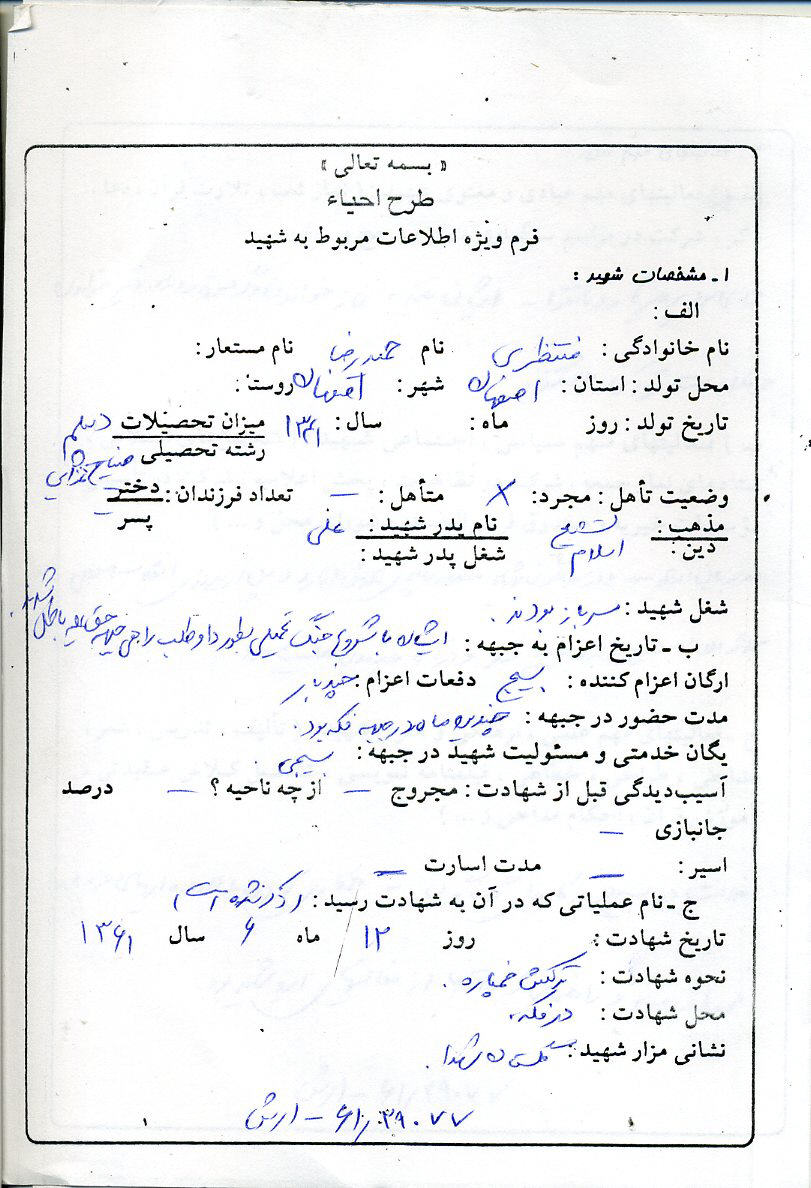 « بسمه تعالی »
طرح احیاء
فرم ویژه اطلاعات مربوط به شهید
۱ ـ مشخصات شهید :
الف :
نام خانوادگی : منتظری نام حمیدرضا نام مستعار :
محل تولد : استان : اصفهان شهر : اصفهان روستا :
تاریخ تولد : روز ماه : سال : ۱۳۴۱ میزان تحصیلات دیپلم
رشته تحصیلی صنایع غذایی
وضعیت تأهل : مجرد : × متأهل : — تعداد فرزندان : دختر —
پسر —
مذهب : تشیع نام پدر شهید : علی
دین : اسلام شغل پدر شهید :
شغل شهید : سرباز بودند .
ب ـ تاریخ اعزام به جبهه : ایشان با شروع جنگ تحمیلی بطور داوطلب راهی جبهه حق علیه باطل شدند .
ارگان اعزام کننده : بسیج دفعات اعزام : چندبار
مدت حضور در جبهه : چندین ماه در جبهه فکه بود .
یگان خدمتی و مسئولیت شهید در جبهه : بسیجی
آسیب‌دیدگی قبل از شهادت : مجروح — از چه ناحیه ؟ — درصد
جانبازی —
اسیر : — مدت اسارت —
ج ـ نام عملیاتی که در آن به شهادت رسید : ( ذکر نشده است )
تاریخ شهادت : روز ۱۲ ماه ۶ سال ۱۳۶۱
نحوه شهادت : ترکش خمپاره .
محل شهادت : در فکه .
نشانی مزار شهید : گلستان شهدا .
۶۱/۲۹۰۷۷ – ارتش